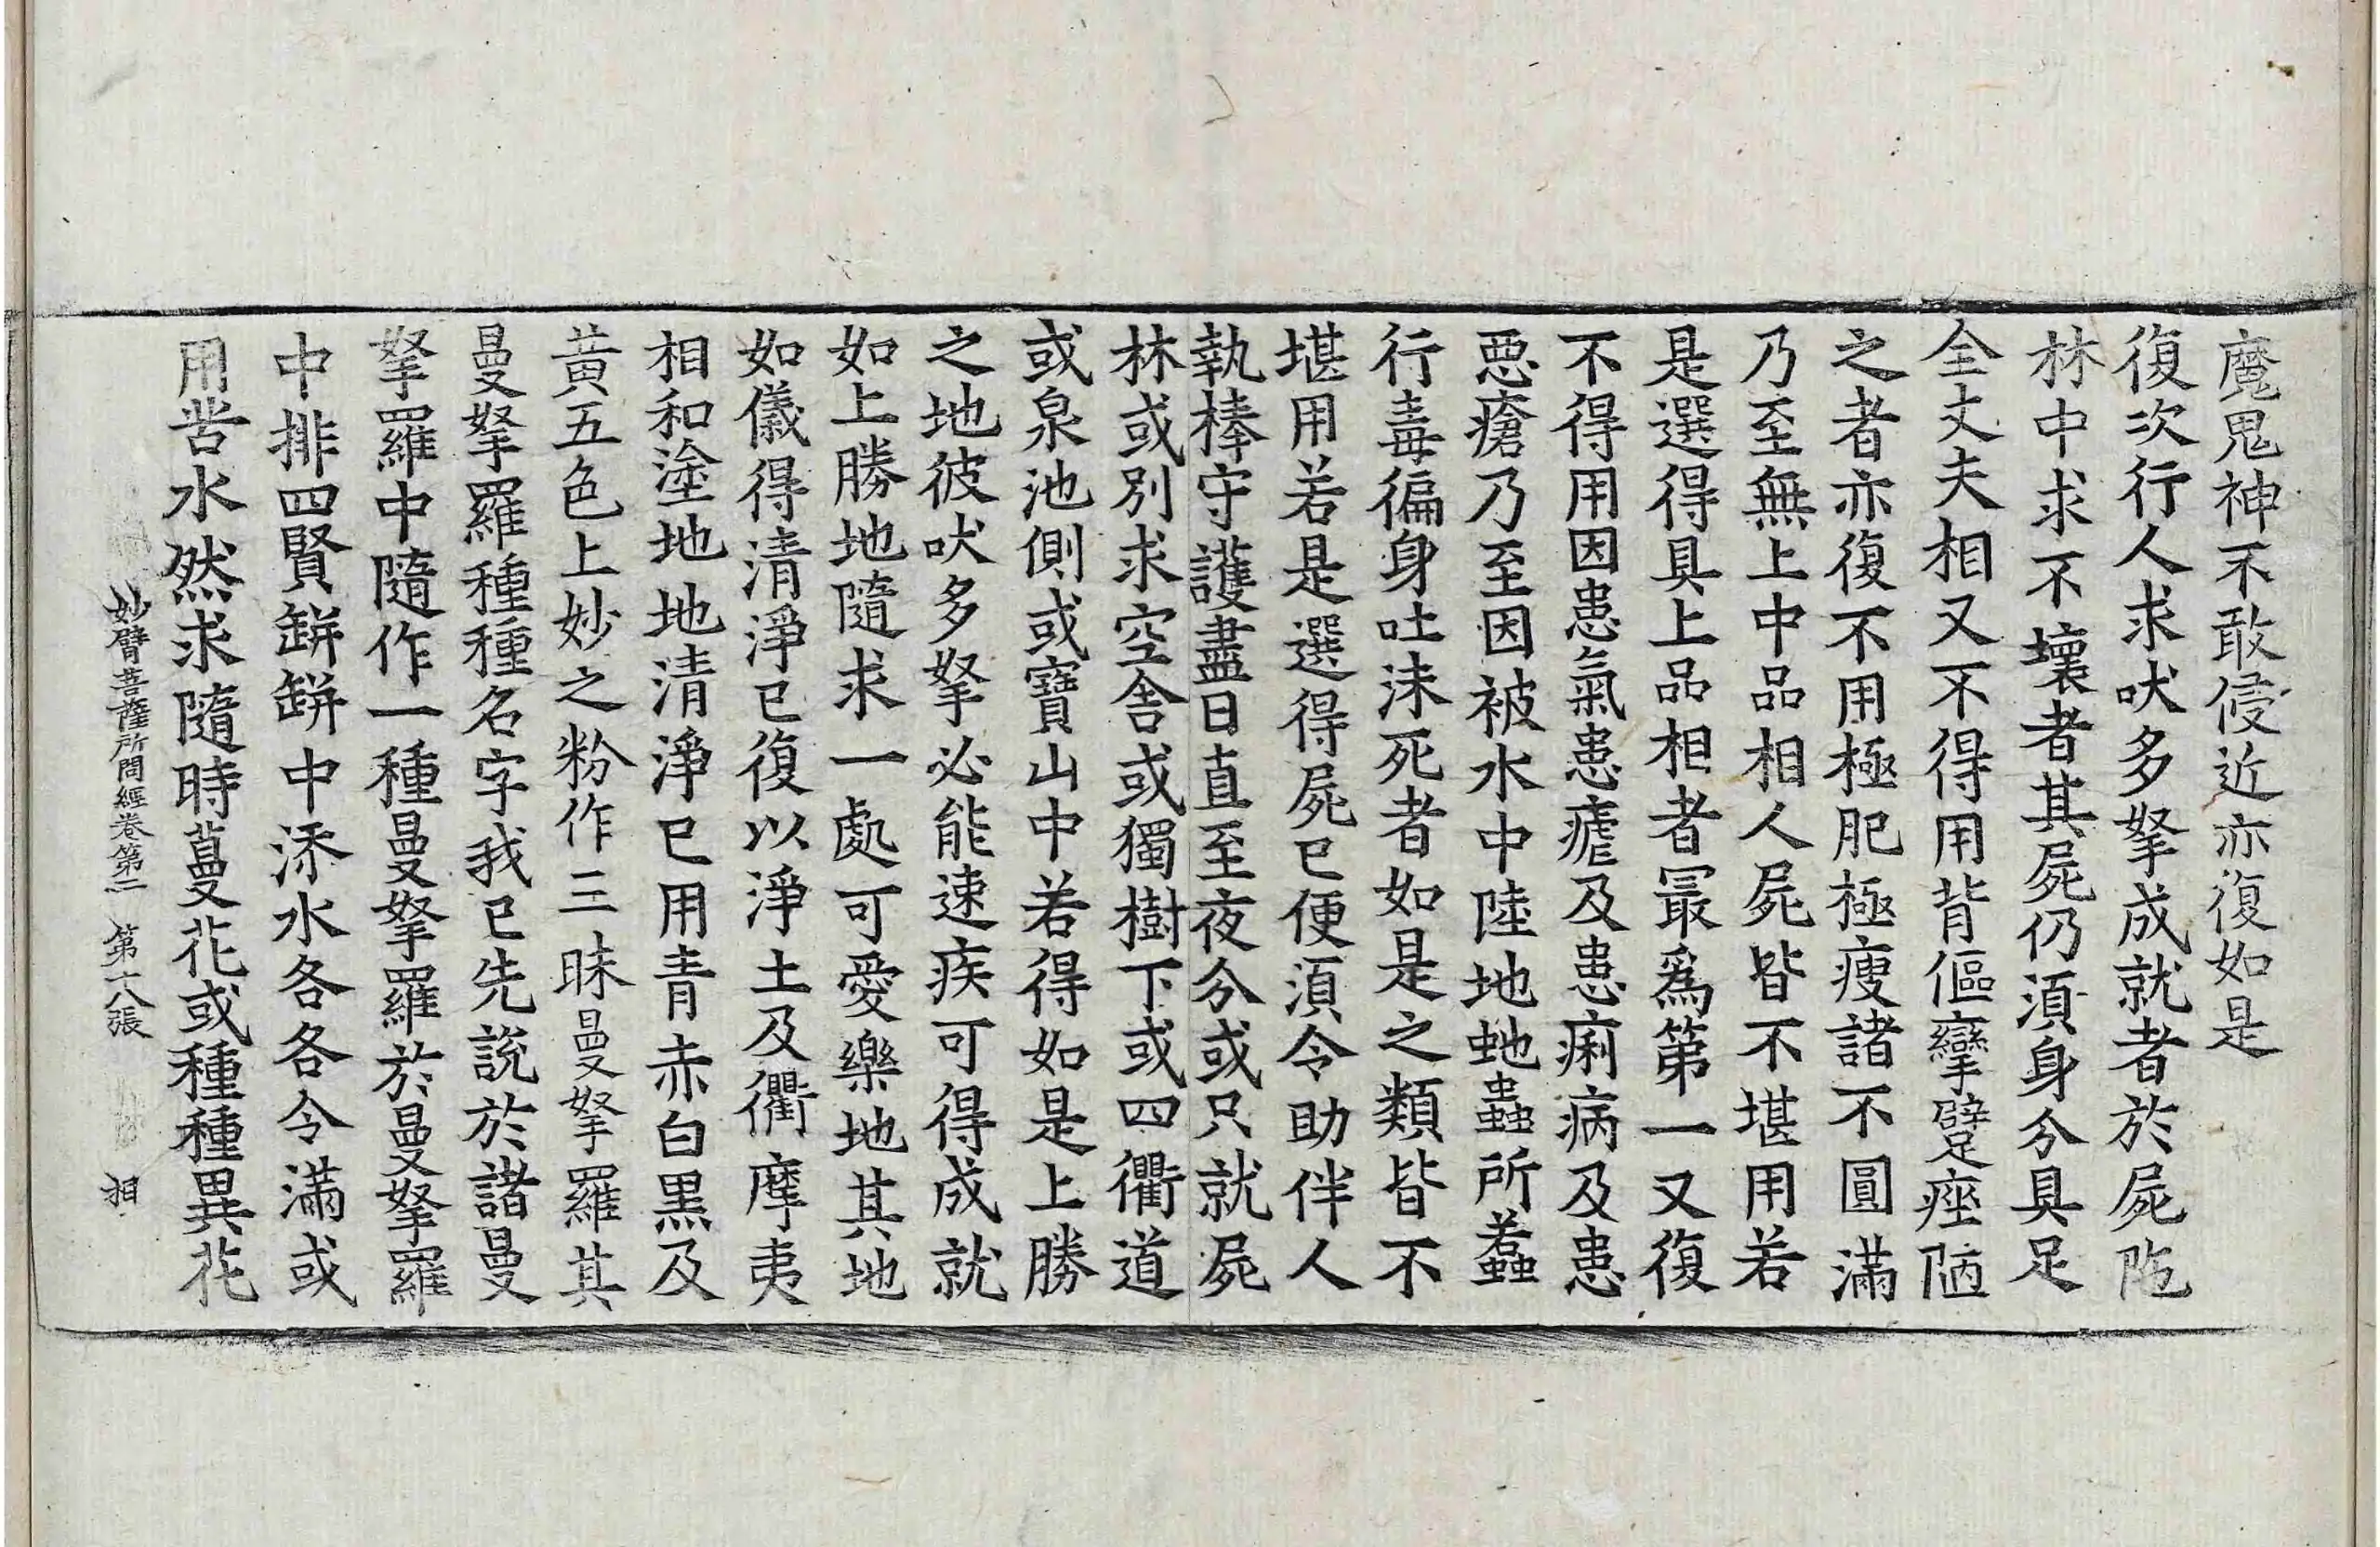 魔鬼神不敢侵近亦復如是
復次行人求吠多拏成就者於屍陁
林中求不壞者其屍仍須身分具足
全丈夫相又不得用背傴攣躄痤陋
之者亦復不用極肥極瘦諸不圓滿
乃至無上中品相人屍皆不堪用若
是選得具上品相者冣爲第一又復
不得用因患氣患瘧及患痢病及患
惡瘡乃至因被水中陸地虵蟲所螫
行毒徧身吐沬死者如是之類皆不
堪用若是選得屍已便須令助伴人
執棒守護盡日直至夜分或只就屍
林或別求空舍或獨樹下或四衢道
或泉池側或寶山中若得如是上勝
之地彼吠多拏必能速疾可得成就
如上勝地隨求一處可愛樂地其地
如儀得清淨已復以淨土及衢摩夷
相和塗地地清淨已用青赤白黑及
黃五色上妙之粉作三昧曼拏羅其
曼拏羅種種名字我已先說於諸曼
拏羅中隨作一種曼拏羅於曼拏羅
中排四賢缾缾中添水各各令滿或
用甞水然求隨時蔓花或種種異花
妙臂菩薩所問經卷第二 第十八張 相